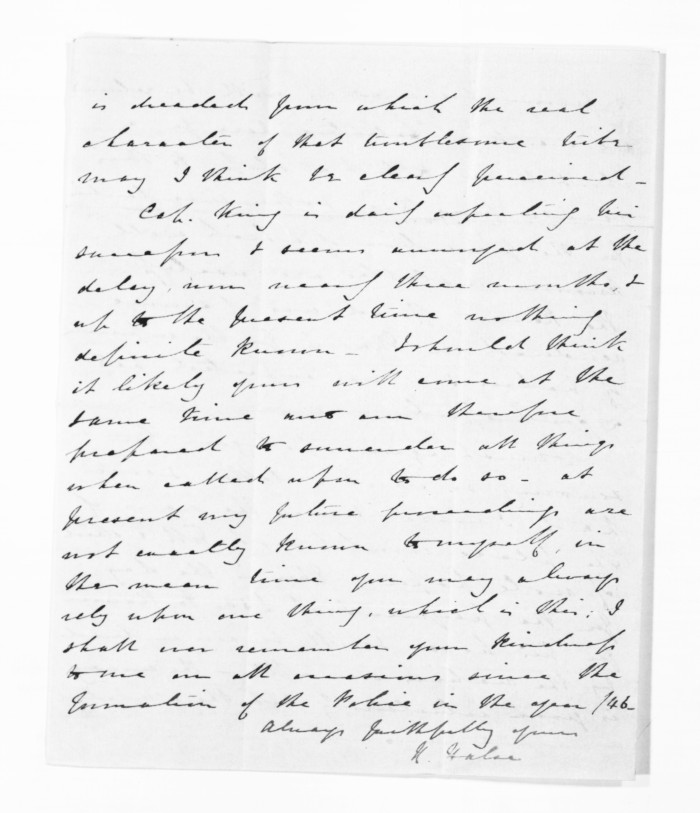 is dreaded from which the real
character of that troublesome tribe
may I think be clearly perceived –
Col. King is daily expecting his
successor & seems annoyed at the
delay, now nearly three months, &
up to the present time nothing
definite known – I should think
it likely yours will come at the
same time and am therefore
prepared to surrender all things
when called upon to do so – at
present my future proceedings are
not exactly known to myself, in
the mean time you may always
rely upon one thing, which is this; I
shall ever remember your kindness
to me on all occasions since the
formation of the Police in the year /46 –
Always faithfully yours
H. Halse